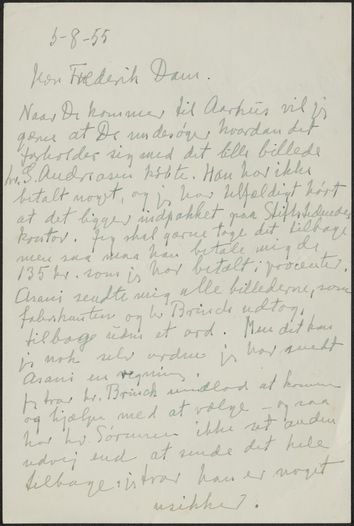 5-8-55
Herr Frederik Dam.
Naar De kommer til Aarhus vil jeg
gerne at De undersøger hvordan det
forholder sig med det lille billede
hr. S. Andreasen købte. Han har ikke
betalt noget, og jeg har tilfældigt hørt
at det ligger indpakket paa
kontor. Jeg skal gerne tage det tilbage
men saa maa han betale mig de
135 kr. som jeg har betalt i procenter.
sendte mig alle billederne, som
fabrikanten og hr Brinch udtog,
tilbage uden et ord. Men det kan
jeg nok selv ordne jeg har sendt
en regning.
jeg tror hr. Brinch undlod at komme
og hjælpe med at vælge – og saa
har hr. Sørensen ikke set anden
udvej end at sende det hele
tilbage: jeg tror han er noget
usikker.